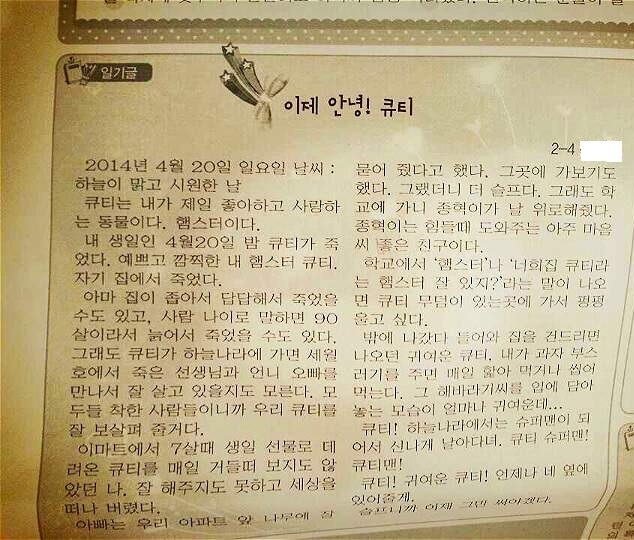 일기글
이제 안녕! 큐티
2-4
2014년 4월 20일 일요일 날씨 :
하늘이 맑고 시원한 날
큐티는 내가 제일 좋아하고 사랑하
는 동물이다. 햄스터이다.
내 생일인 4월20일 밤 큐티가 죽
었다. 예쁘고 깜찍한 내 햄스터 큐티.
자기 집에서 죽었다.
아마 집이 좁아서 답답해서 죽었을
수도 있고, 사람 나이로 말하면 90
살이라서 늙어서 죽었을 수도 있다.
그래도 큐티가 하늘나라에 가면 세월
호에서 죽은 선생님과 언니 오빠를
만나서 잘 살고 있을지도 모른다. 모
두들 착한 사람들이니까 우리 큐티를
잘 보살펴 줄거다.
이마트에서 7살때 생일 선물로 데
려온 큐티를 매일 거들떠 보지도 않
았던 나. 잘 해주지도 못하고 세상을
떠나 버렸다.
아빠는 우리 아파트 앞 나무에 잘
묻어 줬다고 했다. 그곳에 가보기도
했다. 그랬더니 더 슬프다. 그래도 학
교에 가니 종혁이가 날 위로해줬다.
종혁이는 힘들때 도와주는 아주 마음
씨 좋은 친구이다.
학교에서 '햄스터'나 '너희집 큐티라
는 햄스터 잘 있지?'라는 말이 나오
면 큐티 무덤이 있는곳에 가서 펑펑
울고 싶다.
밖에 나갔다 들어와 집을 건드리면
나오던 귀여운 큐티. 내가 과자 부스
러기를 주면 매일 핥아 먹거나 씹어
먹는다. 그 해바라기씨를 입에 담아
놓는 모습이 얼마나 귀여운데...
큐티! 하늘나라에서는 슈퍼맨이 되
어서 신나게 날아다녀. 큐티 슈퍼맨!
큐티맨!
큐티! 귀여운 큐티! 언제나 네 옆에
있어줄게.
슬프니까 이제 그만 써야겠다.